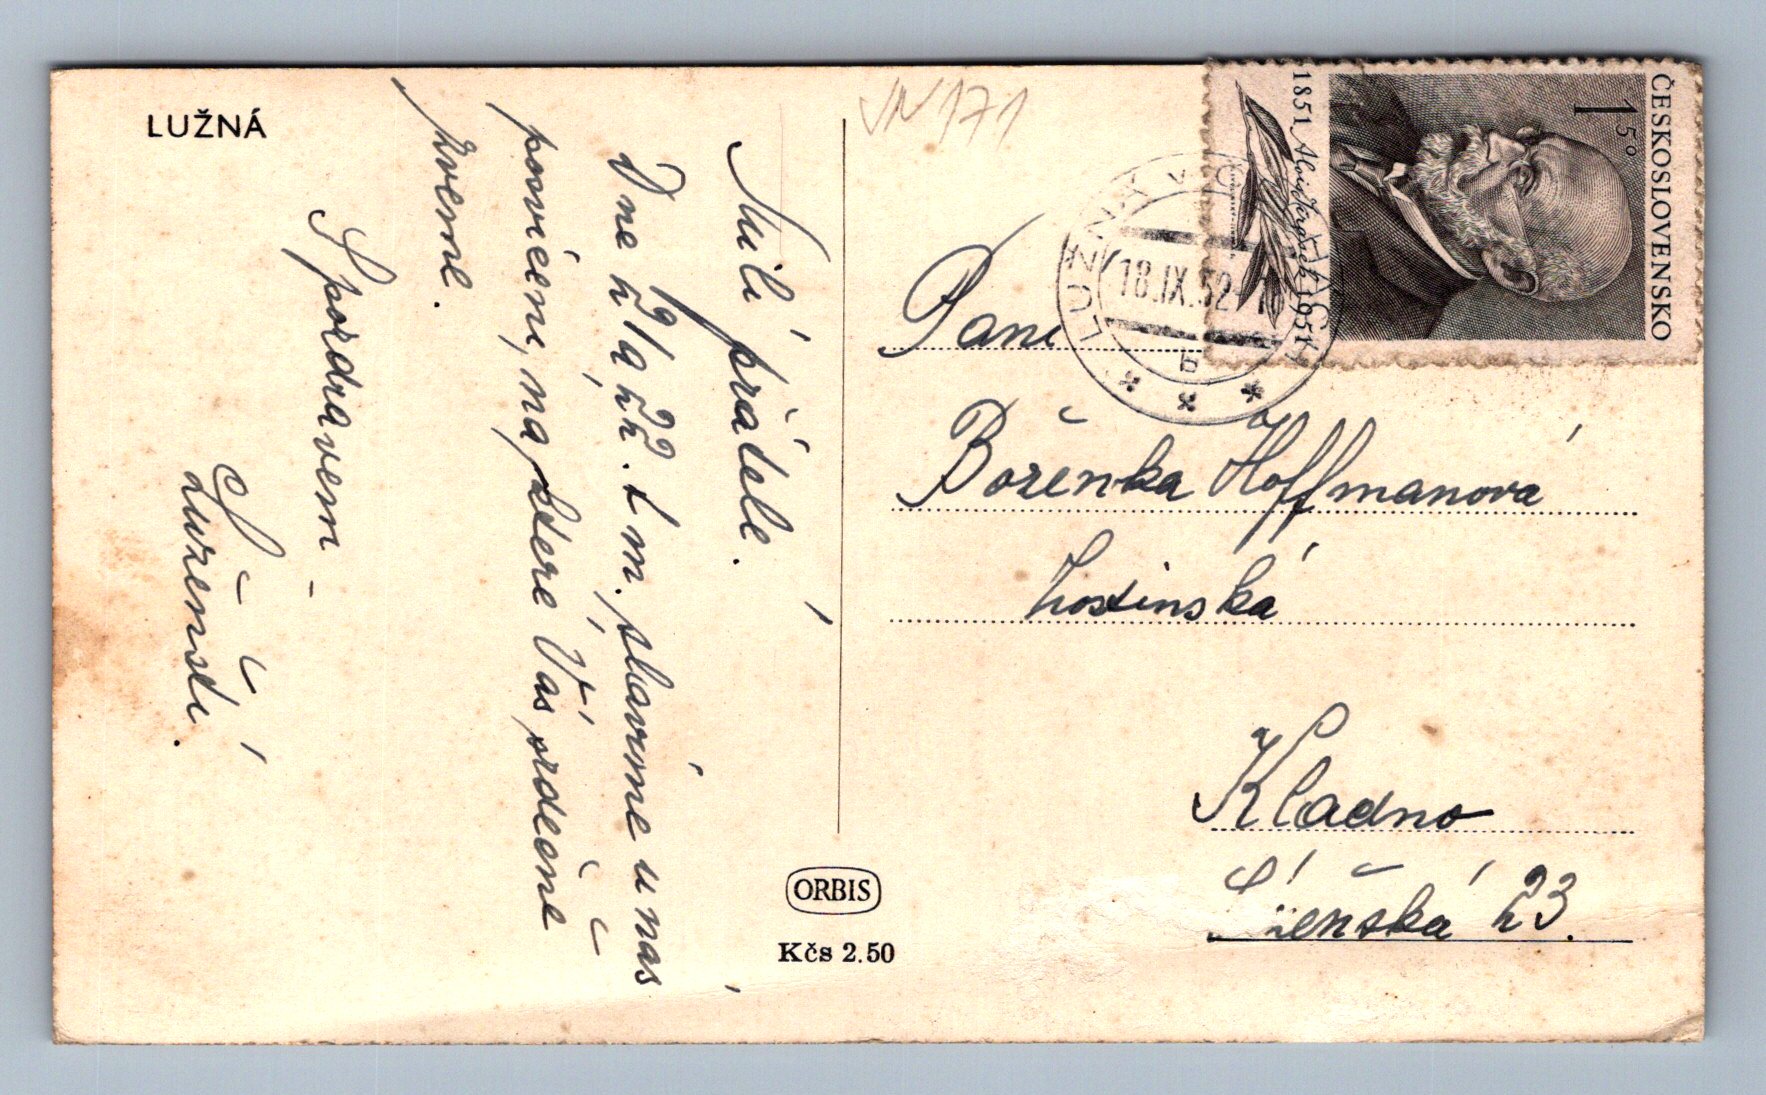 LUŽNÁ
Milí přátelé.
Dne 21 a 22. t m. slavíme u nás
posvícení, na které Vás srdečně
zveme.
S pozdravem
Luženští.
JN 171
ČESKOSLOVENSKO
1 50
1851 Alois Jirásek 1951
LUŽNÁ
18.IX.52
b
Paní
Boženka Hoffmanová
Kladno
23.
ORBIS
Kčs 2.50